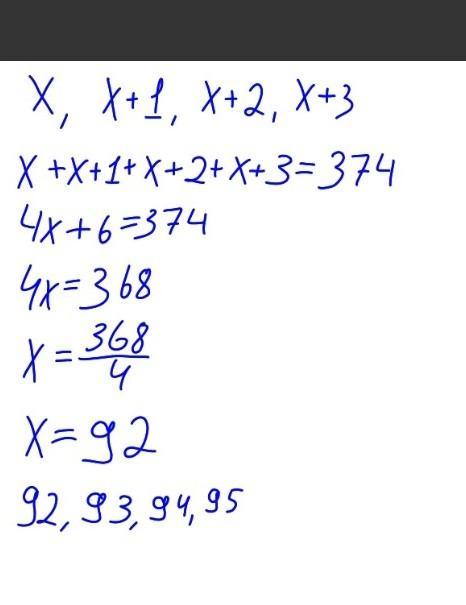 x, x+1, x+2, x+3
x+x+1+x+2+x+3=374
4x+6=374
4x=368
x=368/4
x=92
92, 93, 94, 95